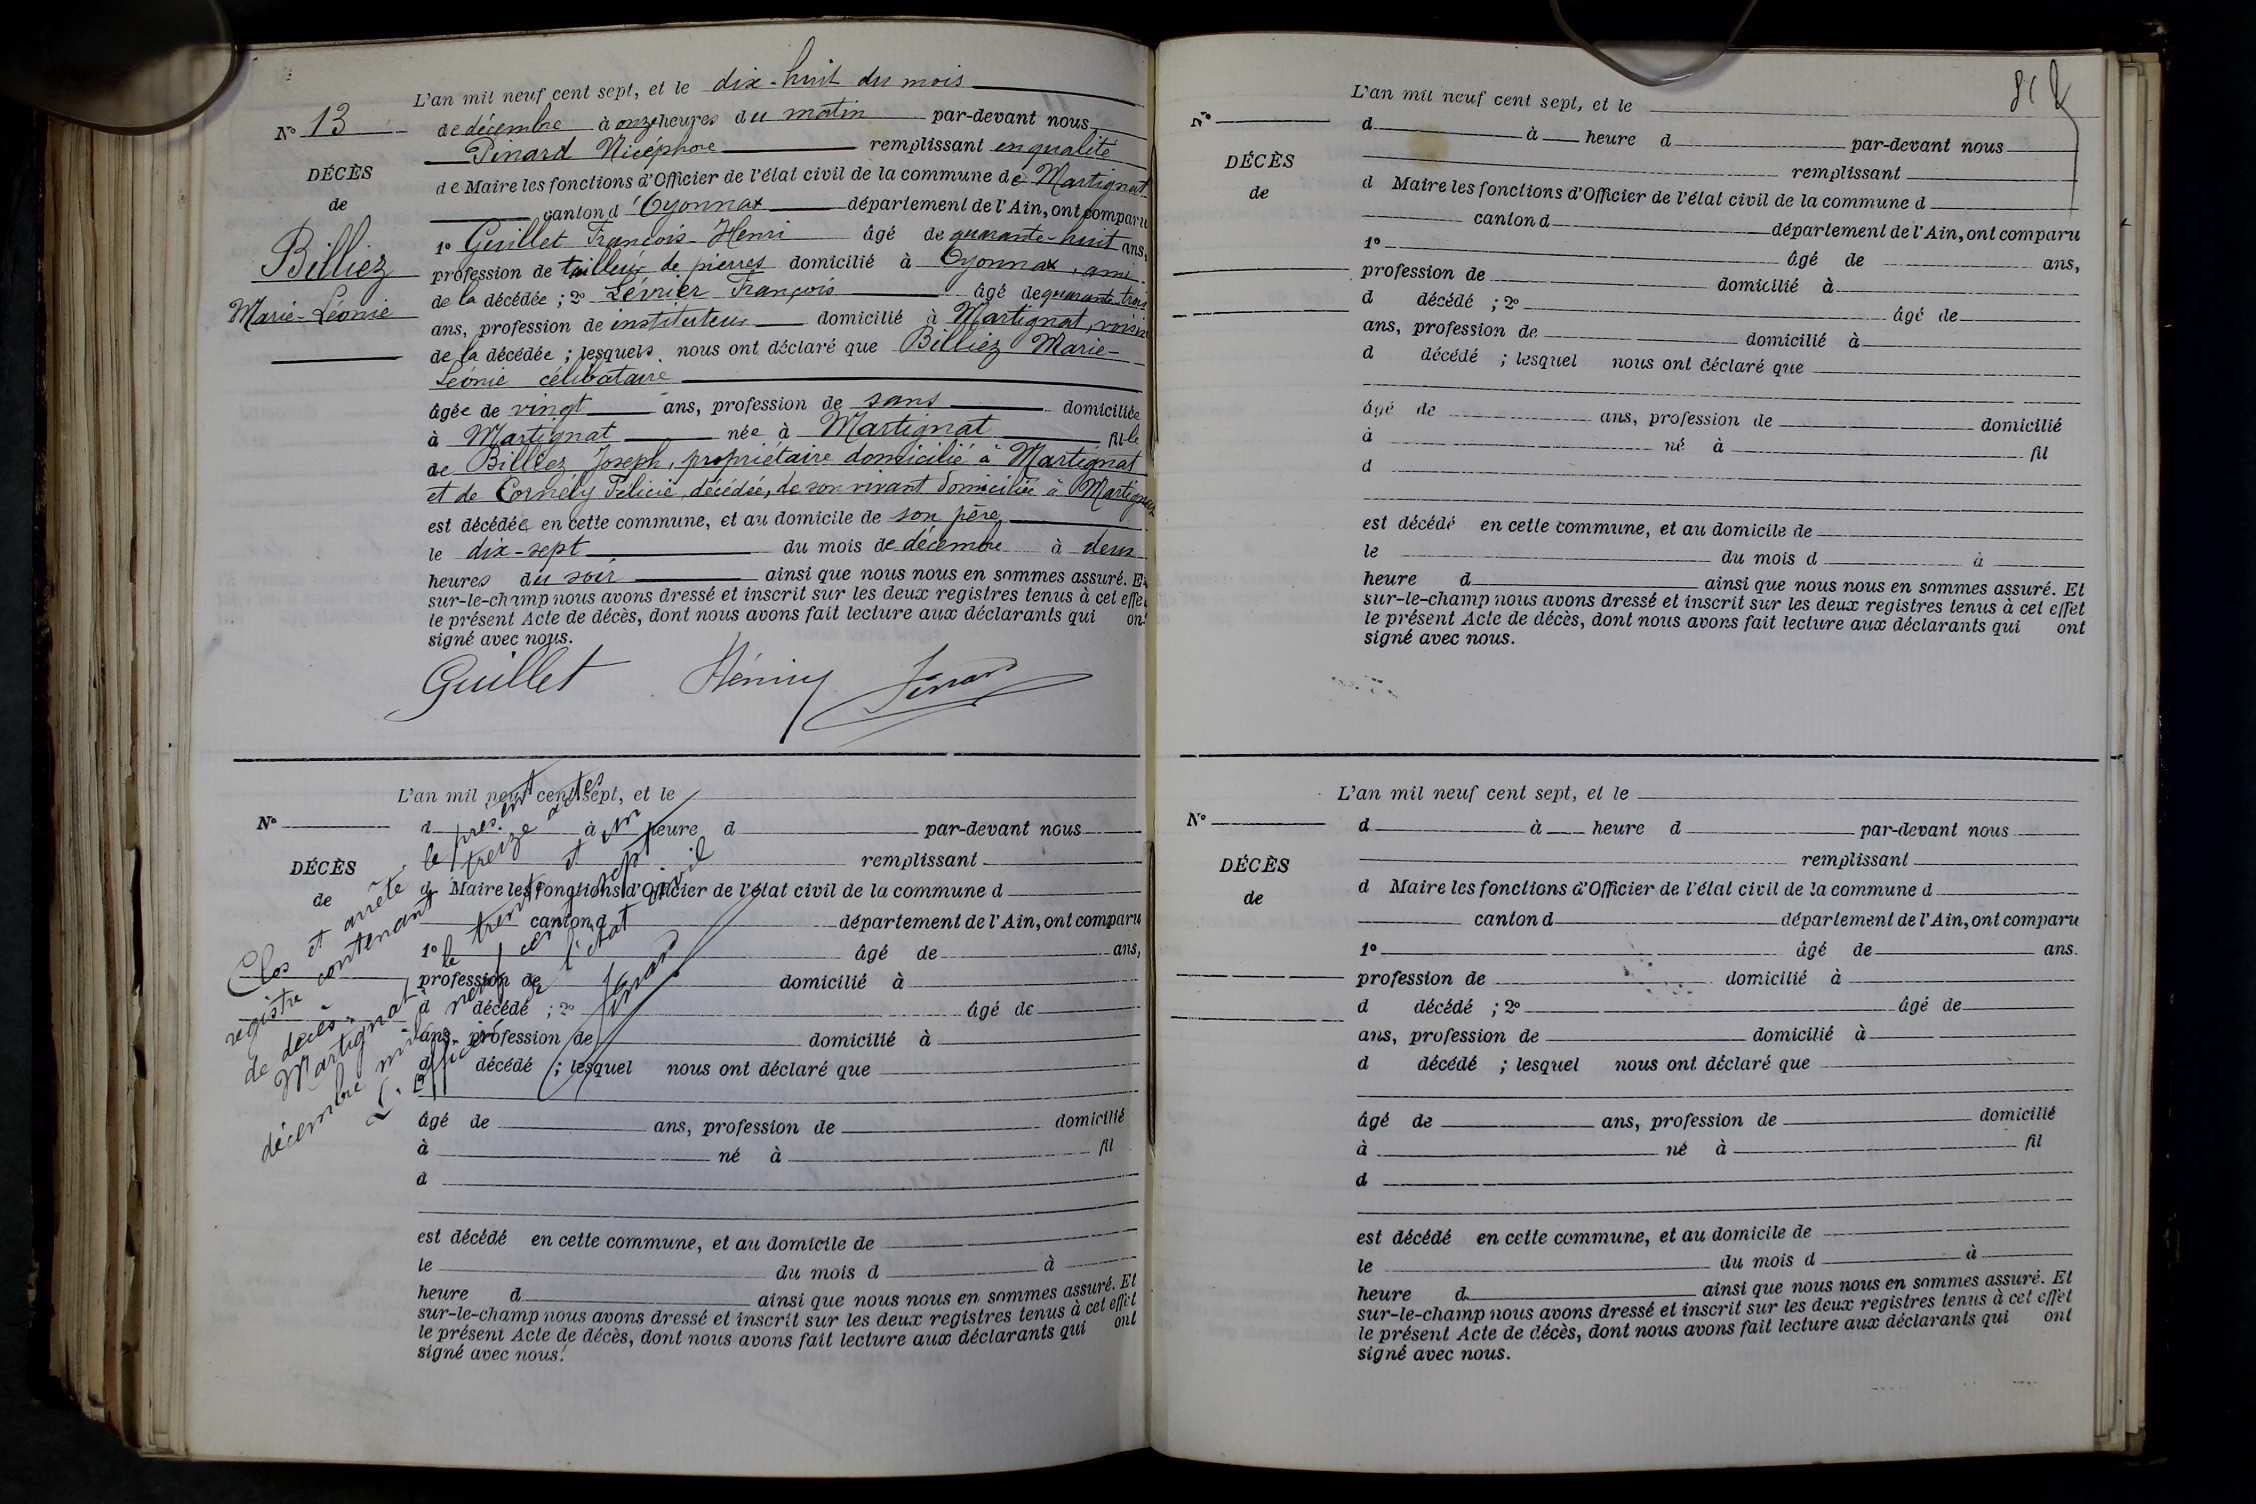 L'an mil neuf cent sept, et le dix-huit du mois
N° 13
de décembre à onze heures du matin par-devant nous
Pinard Nicéphore remplissant en qualité
DÉCÈS
de
Billiez
Marie-Léonie
de Maire les fonctions d'Officier de l'état civil de la commune de Martignat
canton d'Oyonnax département de l'Ain, ont comparu
1° Guillet François-Henri âgé de quarante-huit ans,
profession de tailleur de pierres domicilié à Oyonnax, ami
de la décédée ; 2° Lévrier François âgé de quarante-trois
ans, profession de instituteur domicilié à Martignat, voisin
de la décédée ; lesquels nous ont déclaré que Billiez Marie-
Léonie célibataire
âgée de vingt ans, profession de sans domiciliée
à Martignat née à Martignat fille
de Billiez Joseph, propriétaire domicilié à Martignat
et de Cornély Félicie, décédée, de son vivant domiciliée à Martignat
est décédée en cette commune, et au domicile de son père
le dix-sept du mois de décembre à deux
heures du soir ainsi que nous nous en sommes assuré. Et
sur-le-champ nous avons dressé et inscrit sur les deux registres tenus à cet effet
le présent Acte de décès, dont nous avons fait lecture aux déclarants qui ont
signé avec nous.
Guillet
L'an mil neuf cent sept, et le
N°
d à heure d par-devant nous
remplissant
DÉCÈS
de
d Maire les fonctions d'Officier de l'état civil de la commune d
canton d département de l'Ain, ont comparu
1° âgé de ans,
profession de domicilié à
d décédé ; 2° âgé de
ans, profession de domicilié à
d décédé ; lesquel nous ont déclaré que
âgé de ans, profession de domicilié
à né à fil
d
est décédé en cette commune, et au domicile de
le du mois d à
heure d ainsi que nous nous en sommes assuré. Et
sur-le-champ nous avons dressé et inscrit sur les deux registres tenus à cet effet
le présent Acte de décès, dont nous avons fait lecture aux déclarants qui ont
signé avec nous.
Clos et arrêté le présent
registre contenant treize actes
de décès.
Martignat le trente et un
décembre mil neuf cent sept
L'officier de l'état civil
Pinard
L'an mil neuf cent sept, et le
N°
d à heure d par-devant nous
remplissant
DÉCÈS
de
d Maire les fonctions d'Officier de l'état civil de la commune d
canton d département de l'Ain, ont comparu
1° âgé de ans,
profession de domicilié à
d décédé ; 2° âgé de
ans, profession de domicilié à
d décédé ; lesquel nous ont déclaré que
âgé de ans, profession de domicilié
à né à fil
d
est décédé en cette commune, et au domicile de
le du mois d à
heure d ainsi que nous nous en sommes assuré. Et
sur-le-champ nous avons dressé et inscrit sur les deux registres tenus à cet effet
le présent Acte de décès, dont nous avons fait lecture aux déclarants qui ont
signé avec nous.
L'an mil neuf cent sept, et le
N°
d à heure d par-devant nous
remplissant
DÉCÈS
de
d Maire les fonctions d'Officier de l'état civil de la commune d
canton d département de l'Ain, ont comparu
1° âgé de ans.
profession de domicilié à
d décédé ; 2° âgé de
ans, profession de domicilié à
d décédé ; lesquel nous ont déclaré que
âgé de ans, profession de domicilié
à né à fil
d
est décédé en cette commune, et au domicile de
le du mois d à
heure d ainsi que nous nous en sommes assuré. Et
sur-le-champ nous avons dressé et inscrit sur les deux registres tenus à cet effet
le présent Acte de décès, dont nous avons fait lecture aux déclarants qui ont
signé avec nous.